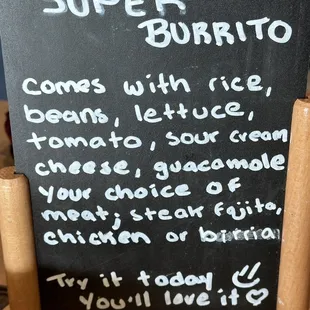 SUPER
BURRITO
comes with rice,
beans, lettuce,
tomato, sour cream
cheese, guacamole
your choice of
meat; steak fajita,
chicken or birria
Try it today
You'll love it